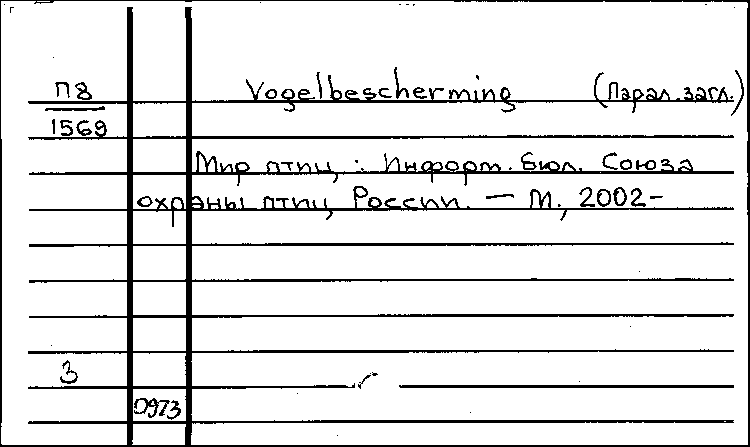 П8 Vogelbescherming (Парал. загл.)
1569
Мир птиц : Информ. бюл. Союза
охраны птиц России. — М., 2002-
3
0973